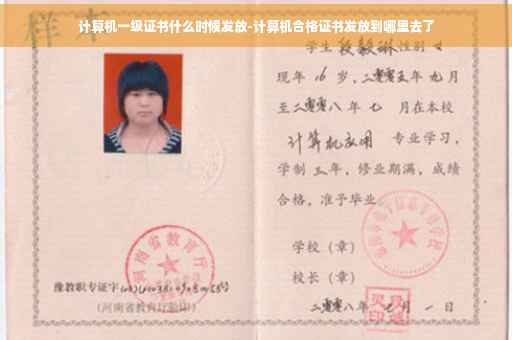 计算机一级证书什么时候发放-计算机合格证书发放到哪里去了
样本
学生段毅琳性别女
现年16岁,二零零五年九月
至二零零八年七月在本校
计算机应用 专业学习,
学制三年,修业期满,成绩
合格,准予毕业
学校(章)
校长(章)
二零零八年 月一日
河南省教育厅
豫教职专证字
(河南省教育厅验印)